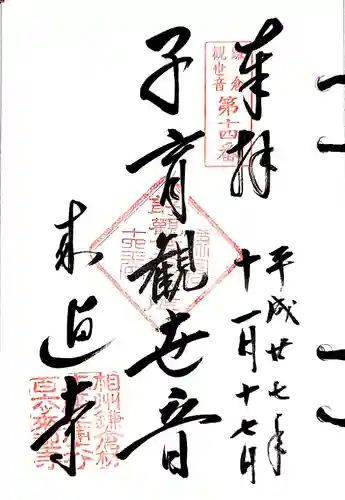 奉拝
鎌倉
観世音
第十四番
平成廿七年
十一月十七日
子育観世音
来迎寺